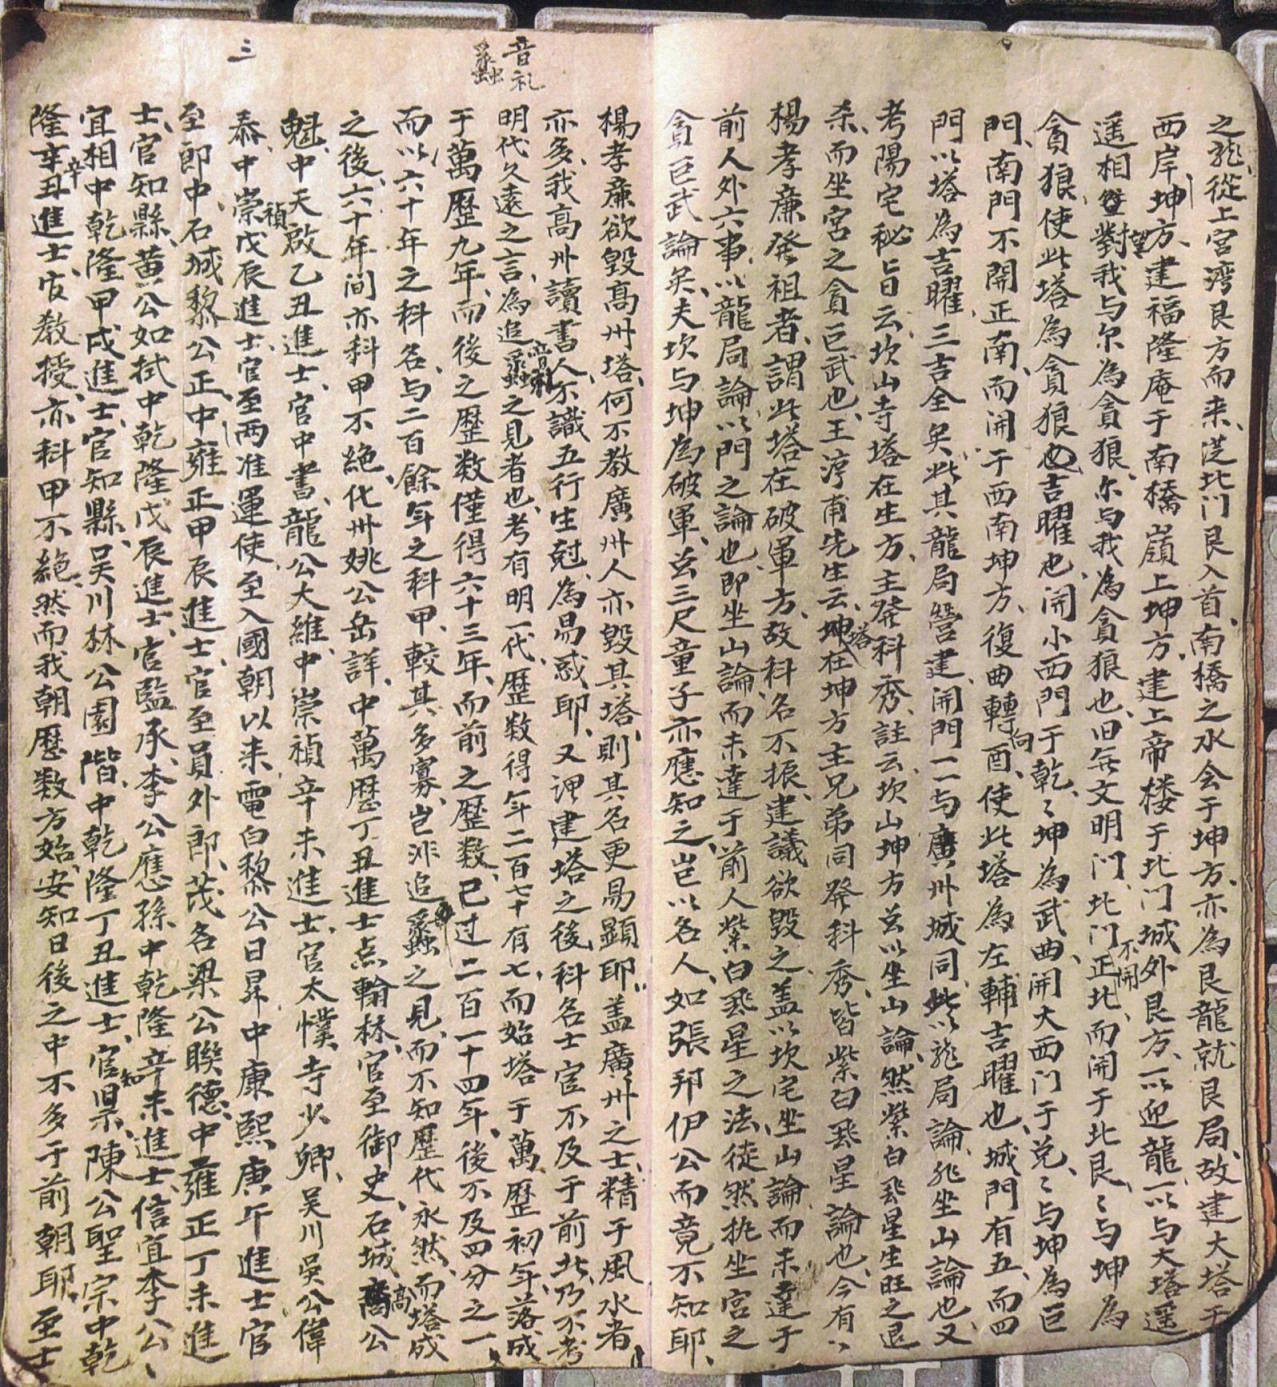 之龍從上宮湾艮方而来、茫北门艮入首、南橋之水会于坤方、亦為艮龍就艮局、故建大塔于
西岸坤方、建福隆庵于南橋嶺上坤方、建上帝楼于北门城外艮方、一以迎龍、一以与大塔遥
遥相對望、我与尔為貪狼、尔与我為貪狼也、旧無文明门、北门不開正北、而開于北艮、艮与坤為
貪狼、使此塔為貪狼吉曜也、開小西門于乾、乾坤為武曲、開大西门于兑、兑与坤為巨
門、南門不開正南、而開于西南坤方、復曲轉向酉、使此塔為左輔吉曜也、城門有五、而四
門以塔為吉曜、三吉全矣、此其龍局營建開門一一与廣州城同、此以龍局論、非坐山論也、又
考陽宅秘旨云、坎山寺塔在生方、主發科秀、註云坎山坤方、玆以坐山論、然紫白飛星生旺之退
杀、而坐宮之貪巨武也、王淳甫先生云、塔在坤方主兄弟同發科秀、皆紫白飛星論也、今有
楊孝廉發祖者、謂此塔在破軍方、故科名不振、建議欲毀之、盖以坎宅坐山論而未達于
前人外六事、以龍局論、以門之論也、即坐山論而未達于前人紫白飛星之法、徒然執坐宮之
貪巨武論矣、夫坎与坤為破軍、玆三尺童子亦應知之、豈以名人、如張邦伊公而竟不知耶、
楊孝廉欲毀高州塔、何不教廣州人亦毀其塔、則其名更易顯耶、盖廣州之士、精于風水者
亦多、我高州讀書人、不識五行生尅、為易惑耶、又谓建塔之後、科名士宦不及于前、此乃不考
明代久遠之言、為追蠡音礼之見者也、考有明一代、歷数得年二百七十有七、而始塔于萬歷初年、落成
于萬歷九年、而後之歷数僅得六十三年、而前之歷数、已过二百一十四年、後不及四分之一
而以六十年之科名、与二百餘年之科甲、較其多寡、豈非追蠡之見、而不知歷代永然、而塔成
之後、六十年间亦科甲不絶、化州姚公岳詳、中萬歷丁丑進士点翰林、官至御史、石城高公
魁、中天啟乙丑進士、官中書、龍公大維、中崇禎辛未進士、官太僕寺少卿、吴川吴公偉
泰、中崇禎戊辰進士、官至兩淮運使、至入國朝以来、電白黎公日昇中康熙庚午進士官
至郎中、石城黎公正、中雍正甲辰進士、官至員外郎、茂名梁公聯德、中雍正丁未進
士、官知縣、黄公如栻中乾隆戊辰進士、官監承、李公應孫中乾隆辛未進士、信宜李公
宜相中乾隆甲戌進士、官知縣、吴川林公園階、中乾隆丁丑進士、官知県、陳公聖宗中乾
隆辛丑進士、官教授、亦科甲不絶、然而我朝歷数方始、安知日後之中不多于前朝耶、至士
音礼
蠡
三